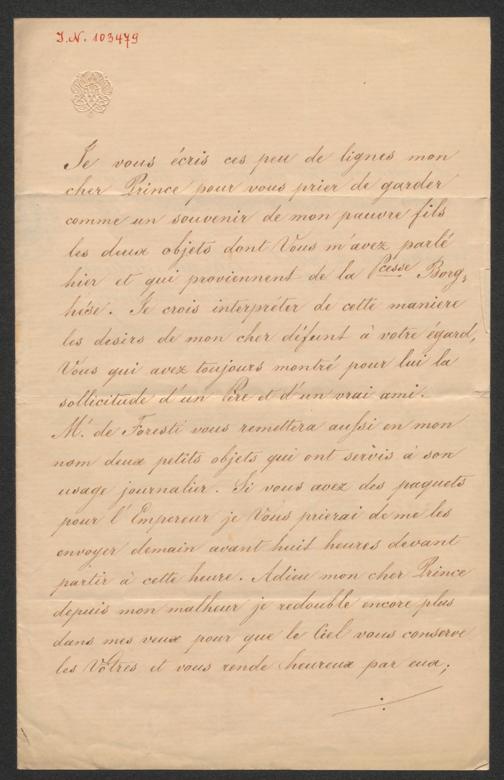 I.N. 103479
Je vous écris ces peu de lignes mon
cher Prince pour vous prier de garder
comme un souvenir de mon pauvre fils
les deux objets dont Vous m'avez parlé
hier et qui proviennent de la Pcesse Borg,
hése. Je crois interpréter de cette maniere
les desirs de mon cher défunt à votre égard,
Vous qui avez toujours montré pour lui la
sollicitude d'un Pére et d'un vrai ami.
Mr. de Foresti vous remettera aussi en mon
nom deux petits objets qui ont servis à son
usage journalier. Si vous avez des paquets
pour l'Empereur je Vous prierai de me les
envoyer demain avant huit heures devant
partir à cette heure. Adieu mon cher Prince
depuis mon malheur je redouble encore plus
dans mes veux pour que le Ciel vous conserve
les Vôtres et vous rende heureux par eux;